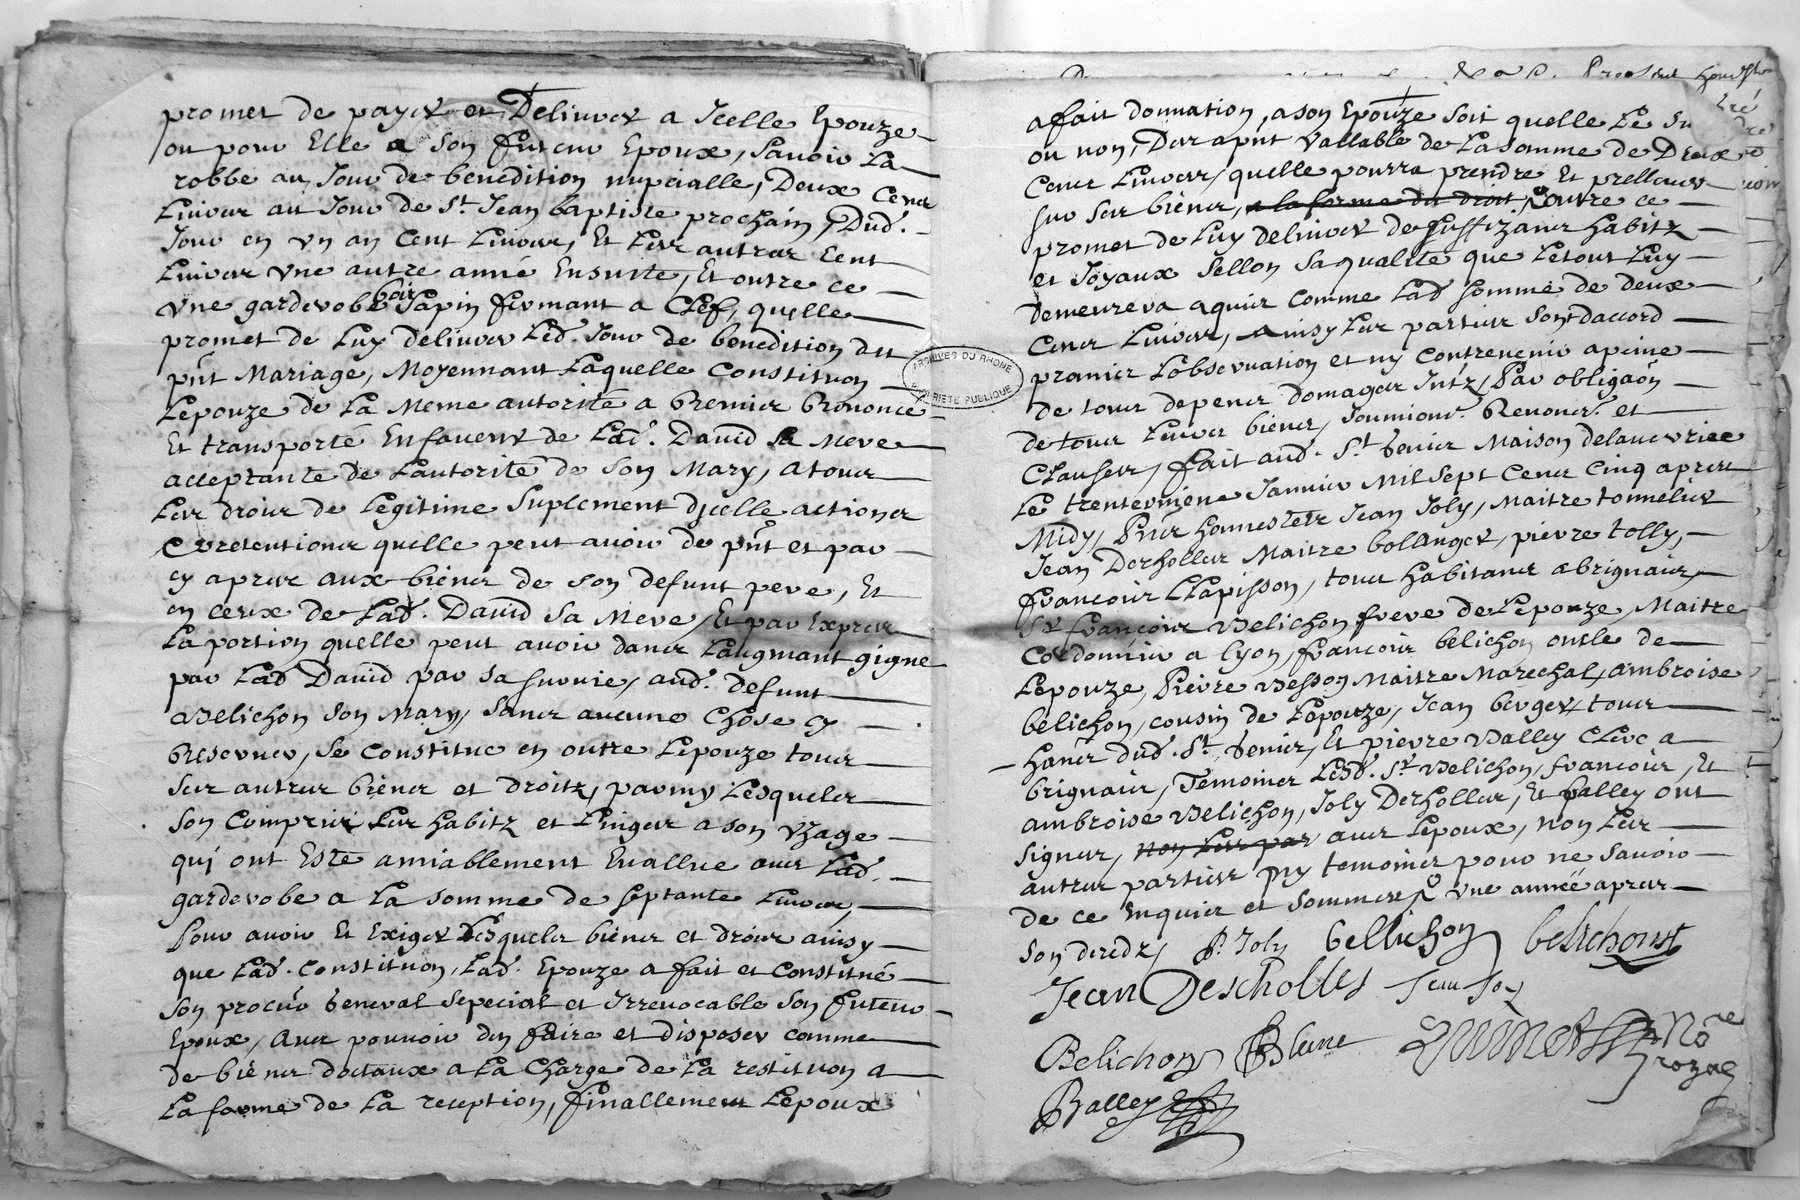 promet de payer et Delivrer a Jcelle Epouze
ou pour Elle a son futeur Epoux, savoir La
robbe au Jour de benedition nupcialle, Deux Cens
Livres au Jour de St. Jean baptiste prochain, Dud.
Jour en vn an Cent Livres, Et Les autres Cent
Livres vne autre anné Ensuite, Et outre ce
vne garderobe bois sapin fermant a Clef, quelle
promet de Luy delivrer Led. Jour de benedition du
pnt Mariage, Moyennant Laquelle Constituon
Lepouze de La Meme autorité a Remier Renoncé
Et transporté En faveur de Lad. David sa Mere
acceptante de Lautorité de son Mary, a tous
Les droits de Legitime suplement djcelle actions
Et retentions quelle peut avoir de pnt et par
cy apres aux biens de son defunt pere, Et
en ceux de Lad. David sa Mere, Et par Expres
La portion quelle peut avoir dans Laugmant gigne
par Lad David par sa survie, aud. defunt
Belichon son Mary, sans aucune Chose cy
Reserver, se constitue en outre Lepouze tous
ses autres biens et droitz, parmy Lesquels
son Compris Les habitz et Linges a son Vzage
qui ont Esté amiablement Evallue avec Lad.
garderobe a La somme de septante Livres,
Pour avoir Et Exiger Lesquels biens et droits ainsy
que Lad. Constituon, Lad. Epouze a fait et constitué
son procur general special et Irrevocable son futeur
Epoux, avec pouvoir den faire et disposer comme
de biens doctaux a La Charge de La restituon a
La forme de La reception, finallement Lepoux
ARCHIVES DU RHONE
PROPRIETE PUBLIQUE
a fait donnation, a son Epouze soit quelle Le
ou non, Dor apnt Vallable de La somme de Deux
Cens Livres, quelle pourra prendre Et prellever
sur ses biens, a la forme du droit, outre ce
promet de Luy delivrer de suffizans habitz
et Joyaux sellon sa qualité que Letout Luy
demeurera aquis comme Lad somme de deux
Cens Livres, ainsy Les parties sont daccord
promier Lobservation et ny contrevenir apeine
de tous depens domages Intz, Par obligaon
de tous Leurs biens, soumions. Renons. et
Clauses, fait aud. St. Genis Maison delauvrice
Le trenteunieme Janvier Mil sept Cens Cinq apres
Midy, Pns honnestes Jean Joly, Maitre tonnelier
Jean Desholles Maitre bollanger, pierre tolly,
francois Chapisson, tous habitans a brignais,
Sr. francois Belichon frere de Lepouze, Maitre
Cordonnier a Lyon, francois belichon oncle de
Lepouze, Pierre Besson Maitre Marechal, ambroise
belichon, cousin de Lepouze, Jean berger tous
hans dud. St. Genis, Et pierre Balley Clerc a
brignais, Temoins Lesd. Srs Belichon, francois, Et
ambroise Belichon, Joly Desholles, Et Balley ont
signes, non Les par avec Lepoux, non Les
autres parties ny temoins pour ne savoir
de ce Enquis et sommes vne année apres
son deredz, P. Joly bellichon belichont
Jean Descholles Jean Joly
Belichon Blanc Guinet No.re
royal
Balley